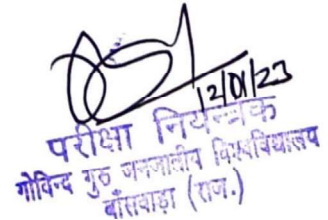 12/01/23
परीक्षा नियन्त्रक
गोविन्द गुरु जनजातीय विश्वविद्यालय
बाँसवाड़ा (राज.)